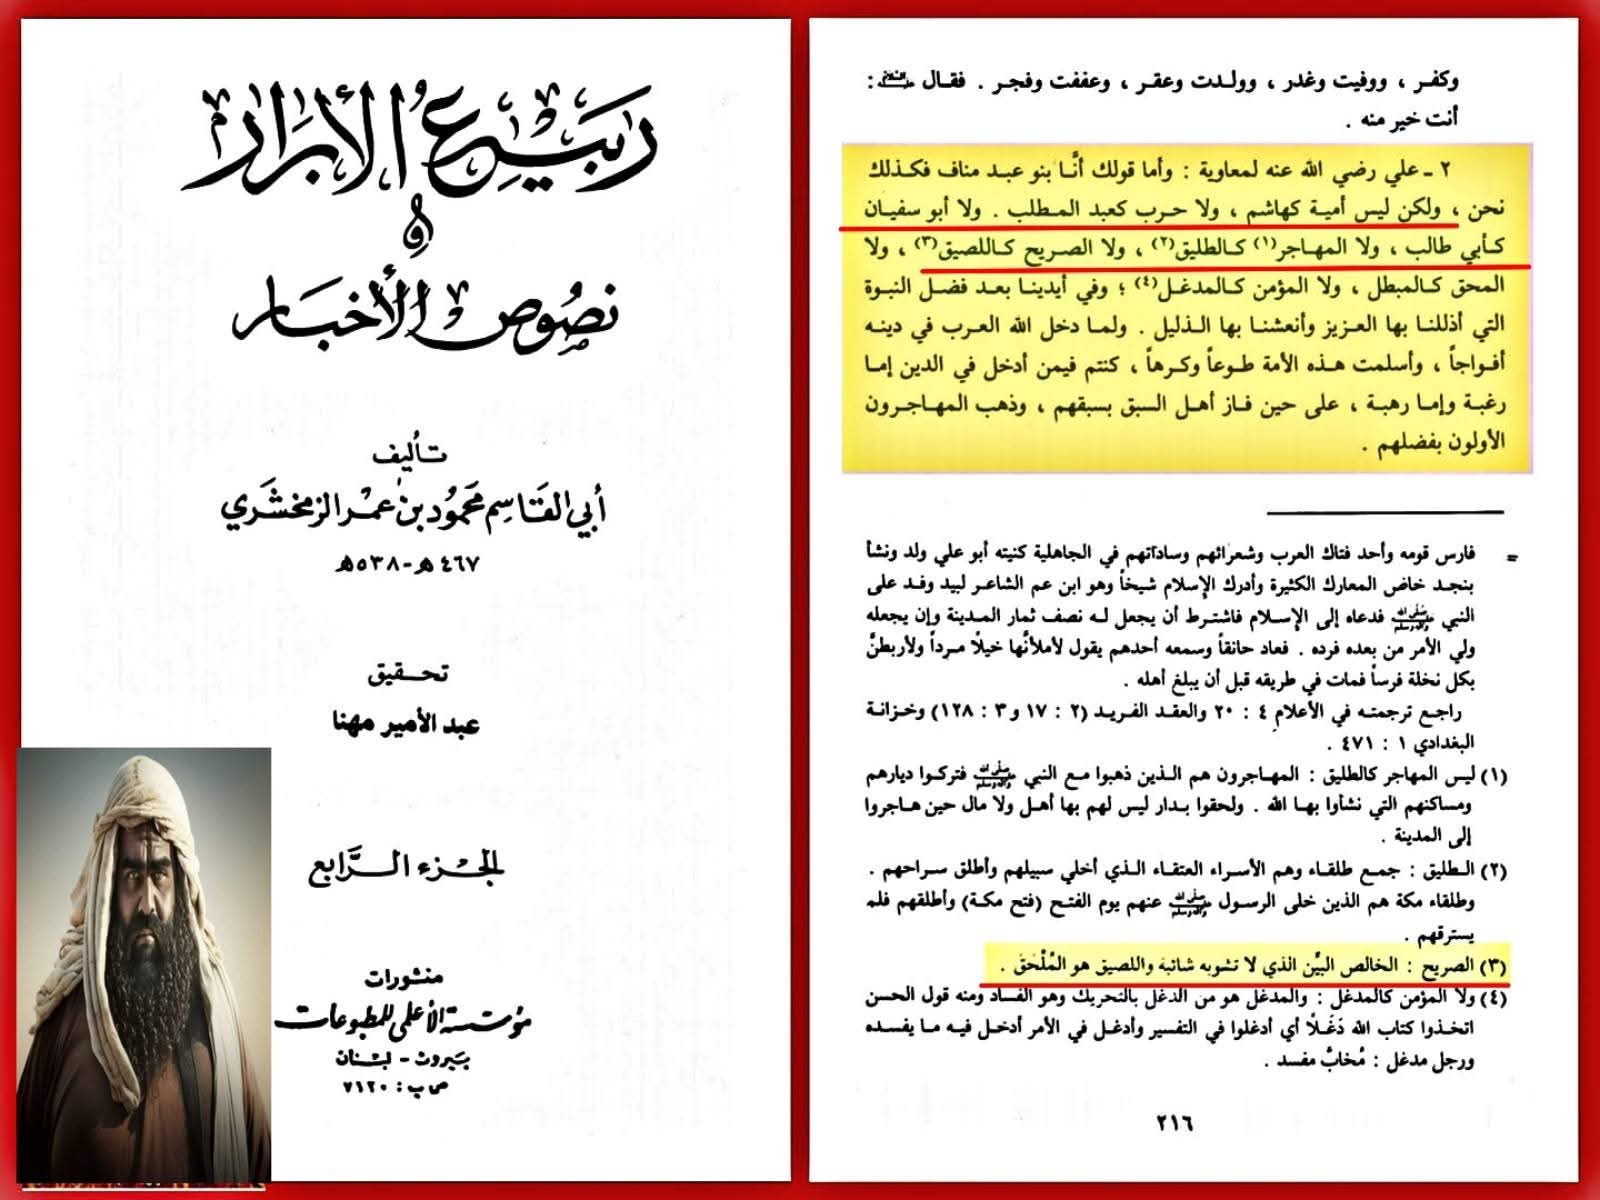 ربيع الأبرار
و
نصوص الأخبار
تأليف
أبي القاسم محمود بن عمر الزمخشري
٤٦٧ هـ - ٥٣٨ هـ
تحقيق
عبد الأمير مهنا
الجزء الرابع
منشورات
مؤسسة الأعلمي للمطبوعات
بيروت - لبنان
ص ب : ٧١٢٠
وكفر ، ووفيت وغدر ، وولدت وعقر ، وعففت وفجر . فقال :
أنت خير منه .
٢ - علي رضي الله عنه لمعاوية : وأما قولك أنَّا بنو عبد مناف فكذلك
نحن ، ولكن ليس أمية كهاشم ، ولا حرب كعبد المطلب . ولا أبو سفيان
كأبي طالب ، ولا المهاجر(١) كالطليق(٢) ، ولا الصريح كاللصيق(٣) ، ولا
المحق كالمبطل ، ولا المؤمن كالمدغل(٤) ؛ وفي أيدينا بعد فضل النبوة
التي أذللنا بها العزيز وأنعشنا بها الذليل . ولما دخل الله العرب في دينه
أفواجاً ، وأسلمت هذه الأمة طوعاً وكرهاً ، كنتم فيمن أدخل في الدين إما
رغبة وإما رهبة ، على حين فاز أهل السبق بسبقهم ، وذهب المهاجرون
الأولون بفضلهم .
= فارس قومه وأحد فتاك العرب وشعرائهم وساداتهم في الجاهلية كنيته أبو علي ولد ونشأ
بنجد خاض المعارك الكثيرة وأدرك الإسلام شيخاً وهو ابن عم الشاعر لبيد وفد على
النبي ﷺ فدعاه إلى الإسلام فاشترط أن يجعل له نصف ثمار المدينة وإن يجعله
ولي الأمر من بعده فرده . فعاد حانقاً وسمعه أحدهم يقول لأملأنَّها خيلاً مرداً ولأربطنَّ
بكل نخلة فرساً فمات في طريقه قبل أن يبلغ أهله .
راجع ترجمته في الأعلام ٤ : ٢٠ والعقد الفريد (٢ : ١٧ و ٣ : ١٢٨) وخزانة
البغدادي ١ : ٤٧١ .
(١) ليس المهاجر كالطليق : المهاجرون هم الذين ذهبوا مع النبي ﷺ فتركوا ديارهم
ومساكنهم التي نشأوا بها . ولحقوا بدار ليس لهم بها أهل ولا مال حين هاجروا
إلى المدينة .
(٢) الطليق : جمع طلقاء وهم الأسراء العتقاء الذي أخلي سبيلهم وأطلق سراحهم .
وطلقاء مكة هم الذين خلى الرسول ﷺ عنهم يوم الفتح (فتح مكة) وأطلقهم فلم
يسترقهم .
(٣) الصريح : الخالص البيِّن الذي لا تشوبه شائبة واللصيق هو المُلْحَق .
(٤) ولا المؤمن كالمدغل : والمدغل هو من الدغل بالتحريك وهو الفساد ومنه قول الحسن
اتخذوا كتاب الله دَغَلاً أي أدغلوا في التفسير وأدغل في الأمر أدخل فيه ما يفسده
ورجل مدغل : مُخابٌّ مفسد .
٢١٦